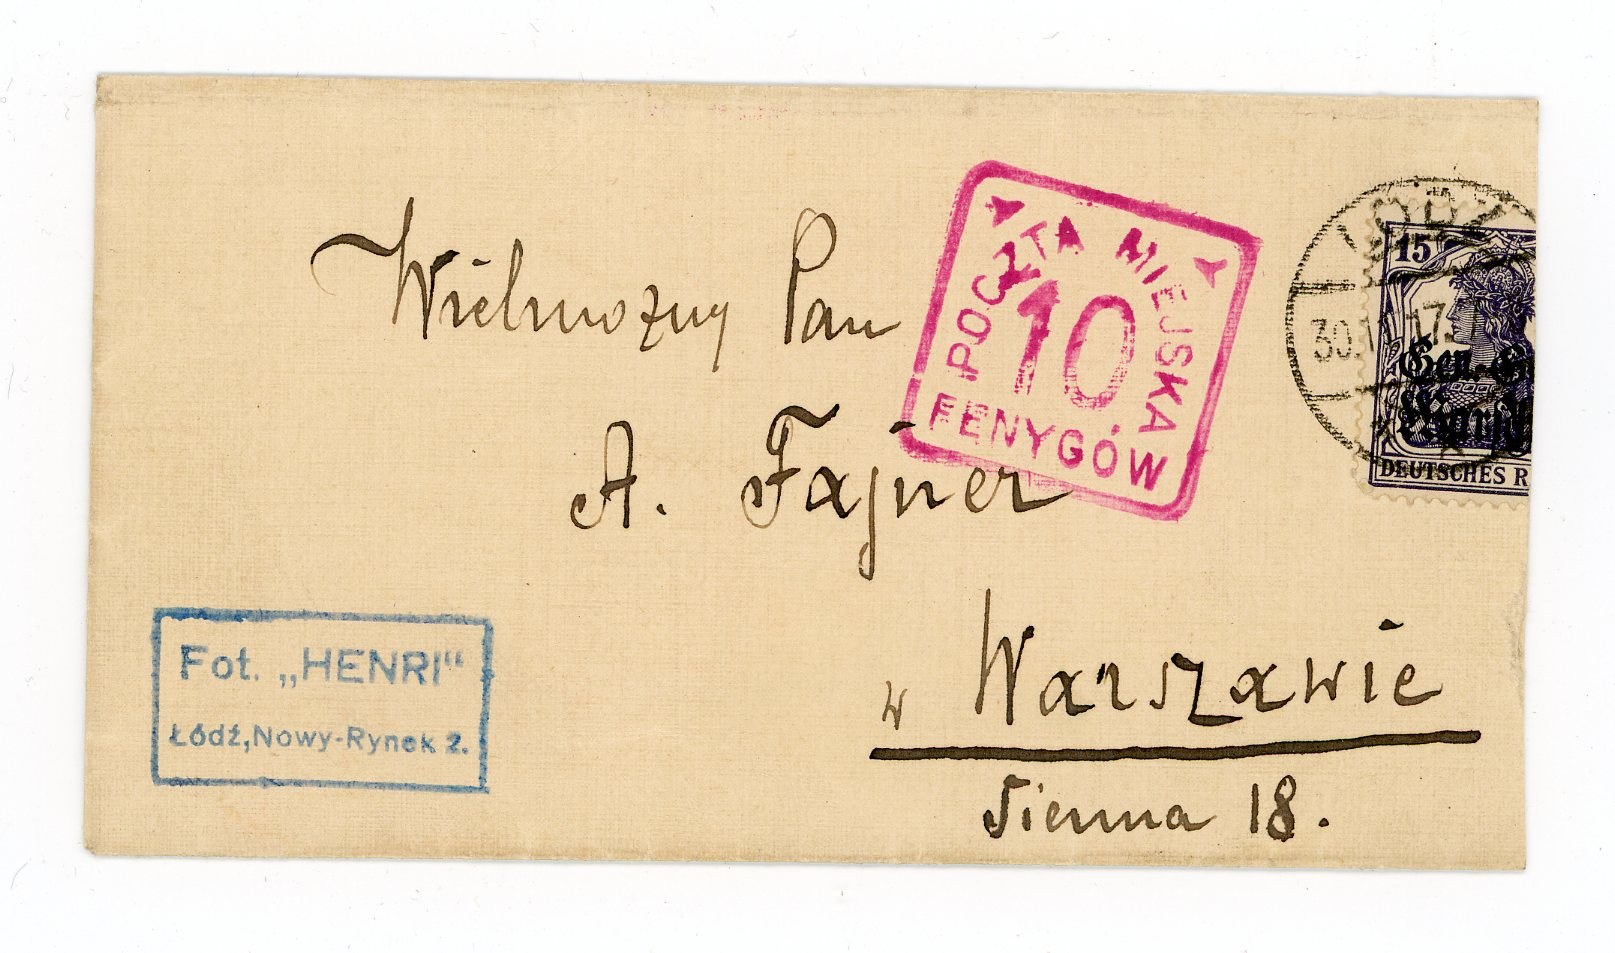 Wielmożny Pan
A. Fajner
w Warszawie
Sienna 18.
POCZTA MIEJSKA
10
FENYGÓW
Fot. „HENRI“
Łódź, Nowy-Rynek 2.
LODZ
15
Gen.-G
Warsch
DEUTSCHES R